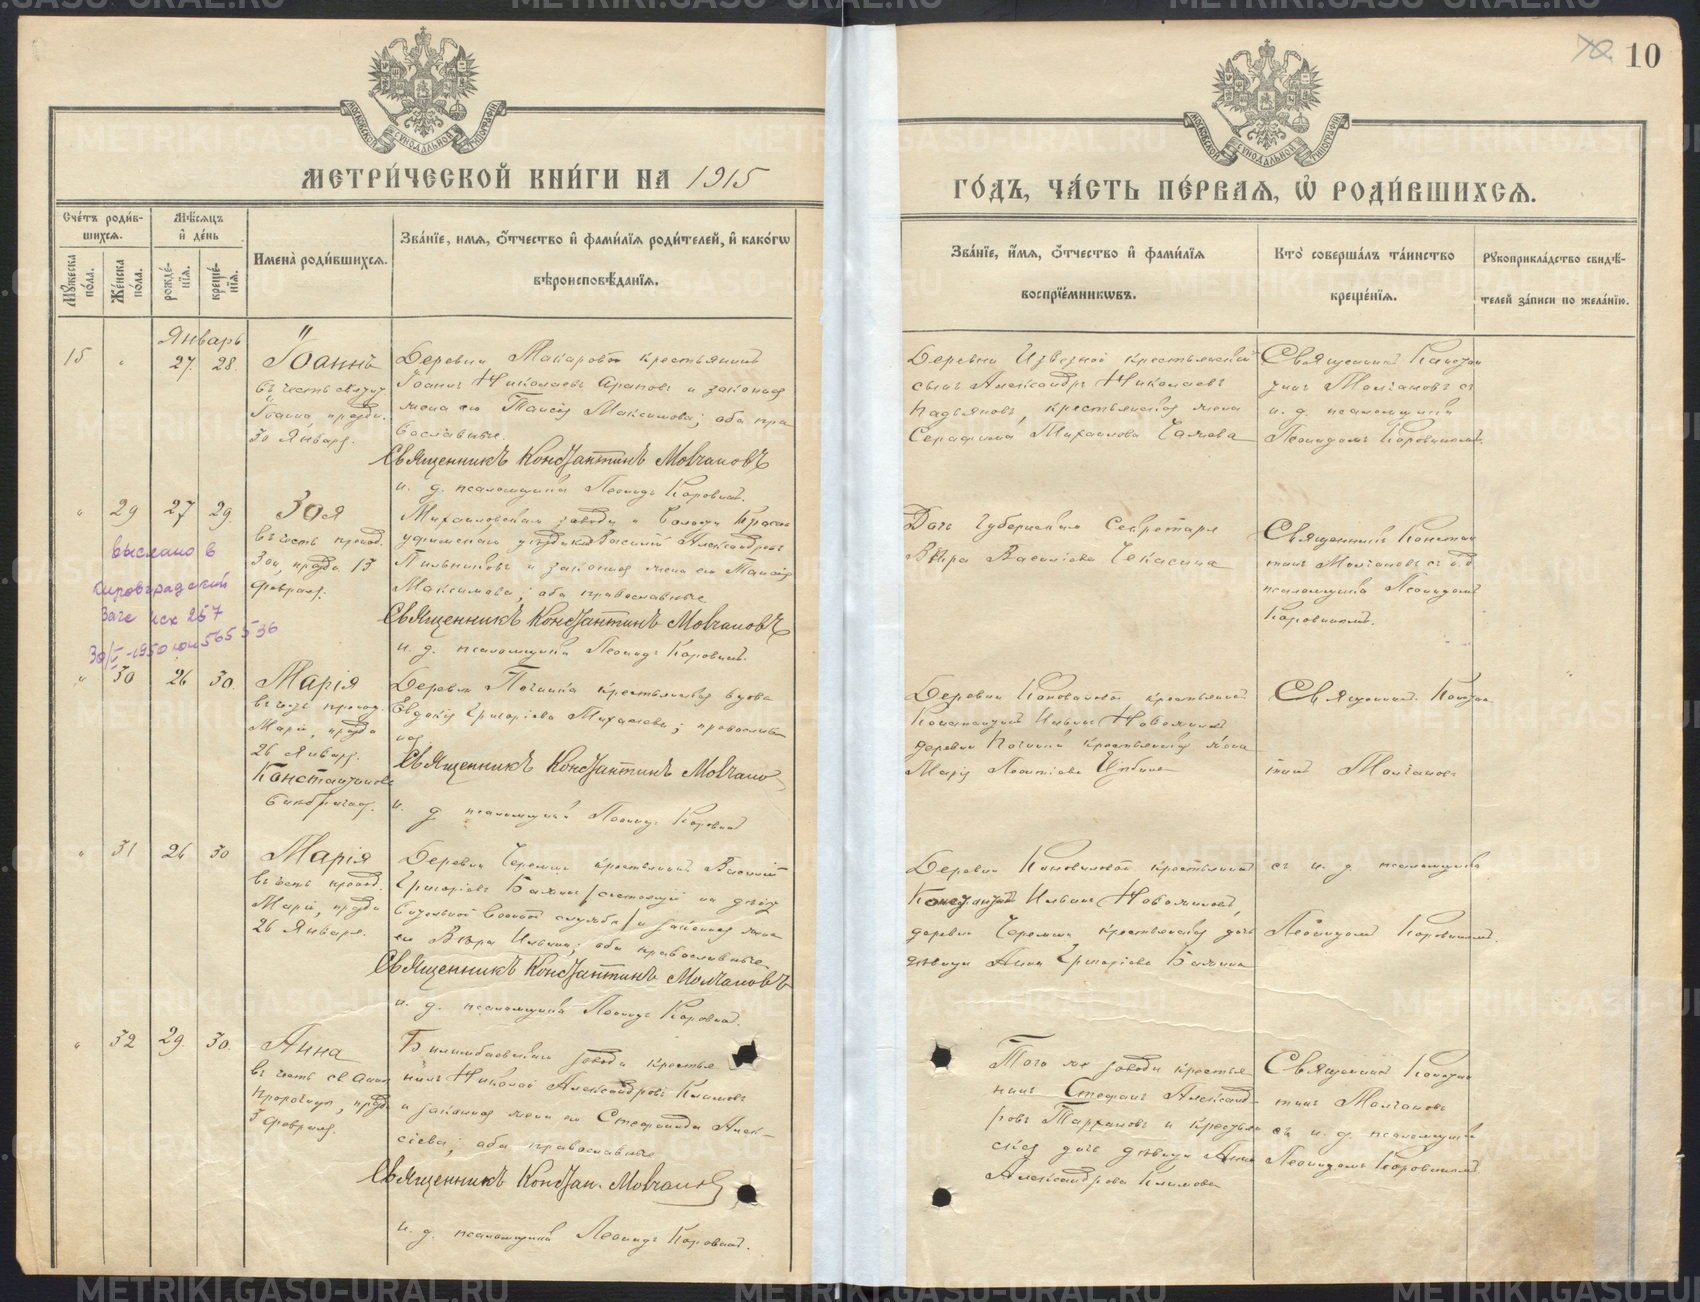 МЕТРИ́ЧЕСКОЙ КНИ́ГИ НА 1915
ГО́ДЪ, ЧА́СТЬ ПЕ́РВАЯ, Ѽ РОДИ́ВШИХСЯ.
10
Сче́тъ роди́в-
шихся.
Мѣ́сяцъ
и҆ де́нь
Мꙋ́жеска
по́ла.
Же́нска
по́ла.
рожде́-
нїя.
креще́-
нїя.
Имена̀ роди́вшихся.
Зва́нїе, имя, ѻ҆́тчество и҆ фами́лїя роди́телей, и҆ како́гѡ
вѣроисповѣ́данїя.
Зва́нїе, и҆́мя, ѻ҆́тчество и҆ фами́лїя
воспрїе́мникѡвъ.
Кто̀ соверша́лъ та́инство
креще́нїя.
Рꙋкоприкла́дство свидѣ́-
телей за́писи по жела́нїю.
Январь
15 " 27. 28.
Іоаннъ
въ честь
Іоанна, праздн.
30 Января.
Деревни Макаровой крестьянинъ
Іоаннъ Николаевъ Араповъ и законная
жена его Таисія Максимова; оба пра
вославные.
Священникъ Константинъ Молчановъ
и. д. псаломщика Леонидъ Коровинъ.
Деревни Извезной крестьянскій
сынъ Александръ Николаевъ
крестьянская жена
Серафима Михаилова
Священникъ Констан
тинъ Молчановъ съ
и. д. псаломщика
Леонидомъ Коровинымъ.
" 29 27 29
Зоя
въ честь препод.
Зои, праздн. 13
февраля.
Михаиловскаго завода и волости Красно
уфимскаго уѣзда Василій Александровъ
Пильниковъ и законная жена его Таисія
Максимова; оба православные
Священникъ Константинъ Молчановъ
и. д. псаломщика Леонидъ Коровинъ.
Дочь Губернскаго Секретаря
Вѣра Василіева Чекасина
Священникъ Констан
тинъ Молчановъ съ и. д.
псаломщика Леонидомъ
Коровинымъ.
выслано в
Кировградский
Загс исх 257
30/I-1950 юи 565536
" 30 26 30.
Марія
въ честь препод.
Маріи, праздн.
26 Января.
Константинова
Деревни Починка крестьянская вдова
Евдокія Григоріева; православ
ная
Священникъ Константинъ Молчано
и. д. псаломщика Леонидъ Коровинъ
Деревни Коноваловой крестьянинъ
Константинъ Ильинъ
деревни Починка крестьянская жена
Марія Леонтіева
Священникъ Констан
тинъ Молчановъ
" 31 26 30
Марія
въ честь препод.
Маріи, праздн.
26 Января.
Деревни Черемши крестьянинъ Василій
Григоріевъ Бажинъ /состоящій на дѣйст
вительной военной службѣ/ и законная жена
его Вѣра Ильина; оба православные
Священникъ Константинъ Молчановъ
и. д. псаломщика Леонидъ Коровинъ.
Деревни Коноваловой крестьянинъ
Константинъ Ильинъ
деревни Черемши крестьянская дочь
дѣвица Анна Григоріева Бажина
съ и. д. псаломщика
Леонидомъ Коровинымъ.
" 32 29. 30.
Анна
въ честь св Анны
Пророчицы, праздн.
3 февраля.
Билимбаевскаго завода крестья
нинъ Николай Александровъ Климовъ
и законная жена его Стефанида Алек-
сіева; оба православные
Священникъ Констан. Молчановъ
и. д. псаломщика Леонидъ Коровинъ.
Того же завода крестья-
нинъ Стефанъ Александ-
ровъ Тархановъ и крестьян
ская дочь дѣвица Анна
Александрова Климова
Священникъ Констан
тинъ Молчановъ
съ и. д. псаломщика
Леонидомъ Коровинымъ